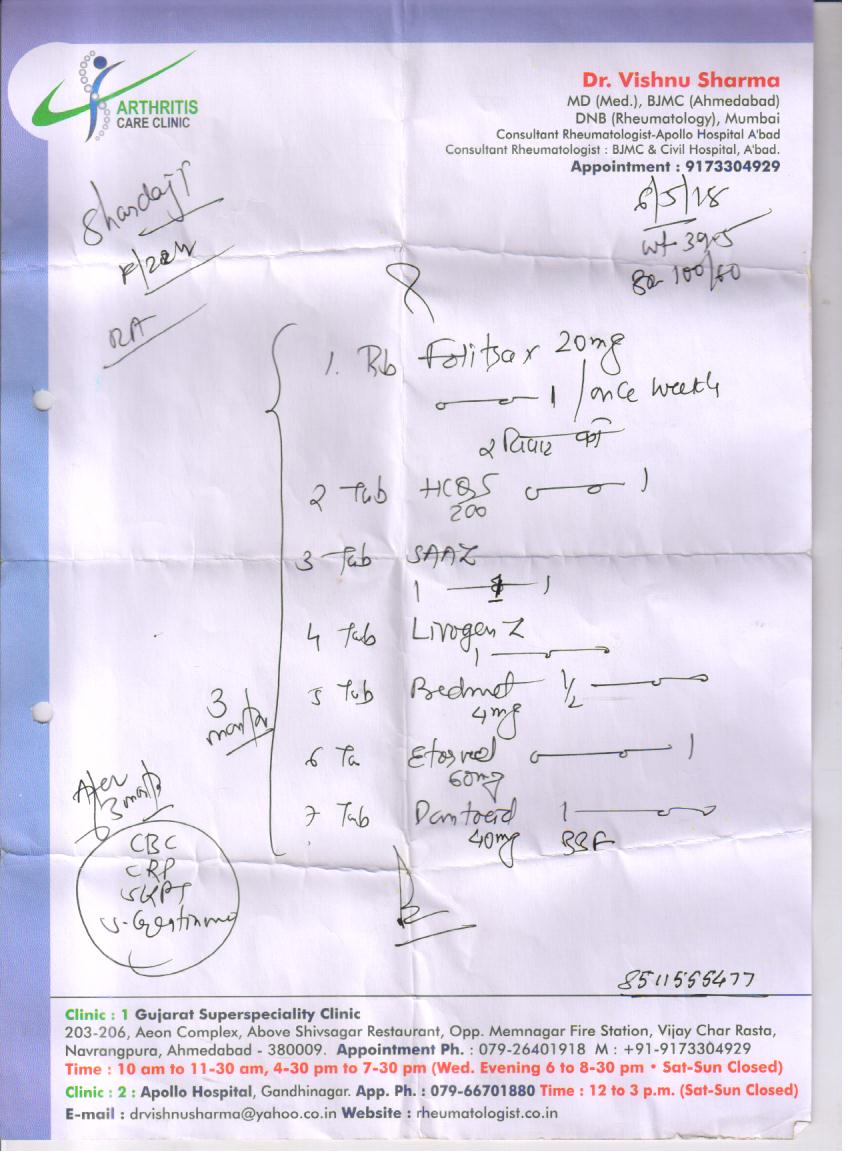 ARTHRITIS
CARE CLINIC
Dr. Vishnu Sharma
MD (Med.), BJMC (Ahmedabad)
DNB (Rheumatology), Mumbai
Consultant Rheumatologist-Apollo Hospital A'bad
Consultant Rheumatologist : BJMC & Civil Hospital, A'bad.
Appointment : 9173304929
6/5/18
Shardaji
wt 39
F/22
100/60
RA
1. Folitrax 20mg
1 / once weekly
2 Tab HCQS 1
200
3 Tab SAAZ
1 1
4 Tab Livogen Z
1
5 Tab Bedmet 1/2
4mg
3
months
6 Ta 1
60mg
7 Tab 1
40mg BBF
After
3 months
CBC
CRP
SGPT
8511555477
Clinic : 1 Gujarat Superspeciality Clinic
203-206, Aeon Complex, Above Shivsagar Restaurant, Opp. Memnagar Fire Station, Vijay Char Rasta,
Navrangpura, Ahmedabad - 380009. Appointment Ph. : 079-26401918 M : +91-9173304929
Time : 10 am to 11-30 am, 4-30 pm to 7-30 pm (Wed. Evening 6 to 8-30 pm • Sat-Sun Closed)
Clinic : 2 : Apollo Hospital, Gandhinagar. App. Ph. : 079-66701880 Time : 12 to 3 p.m. (Sat-Sun Closed)
E-mail : drvishnusharma@yahoo.co.in Website : rheumatologist.co.in